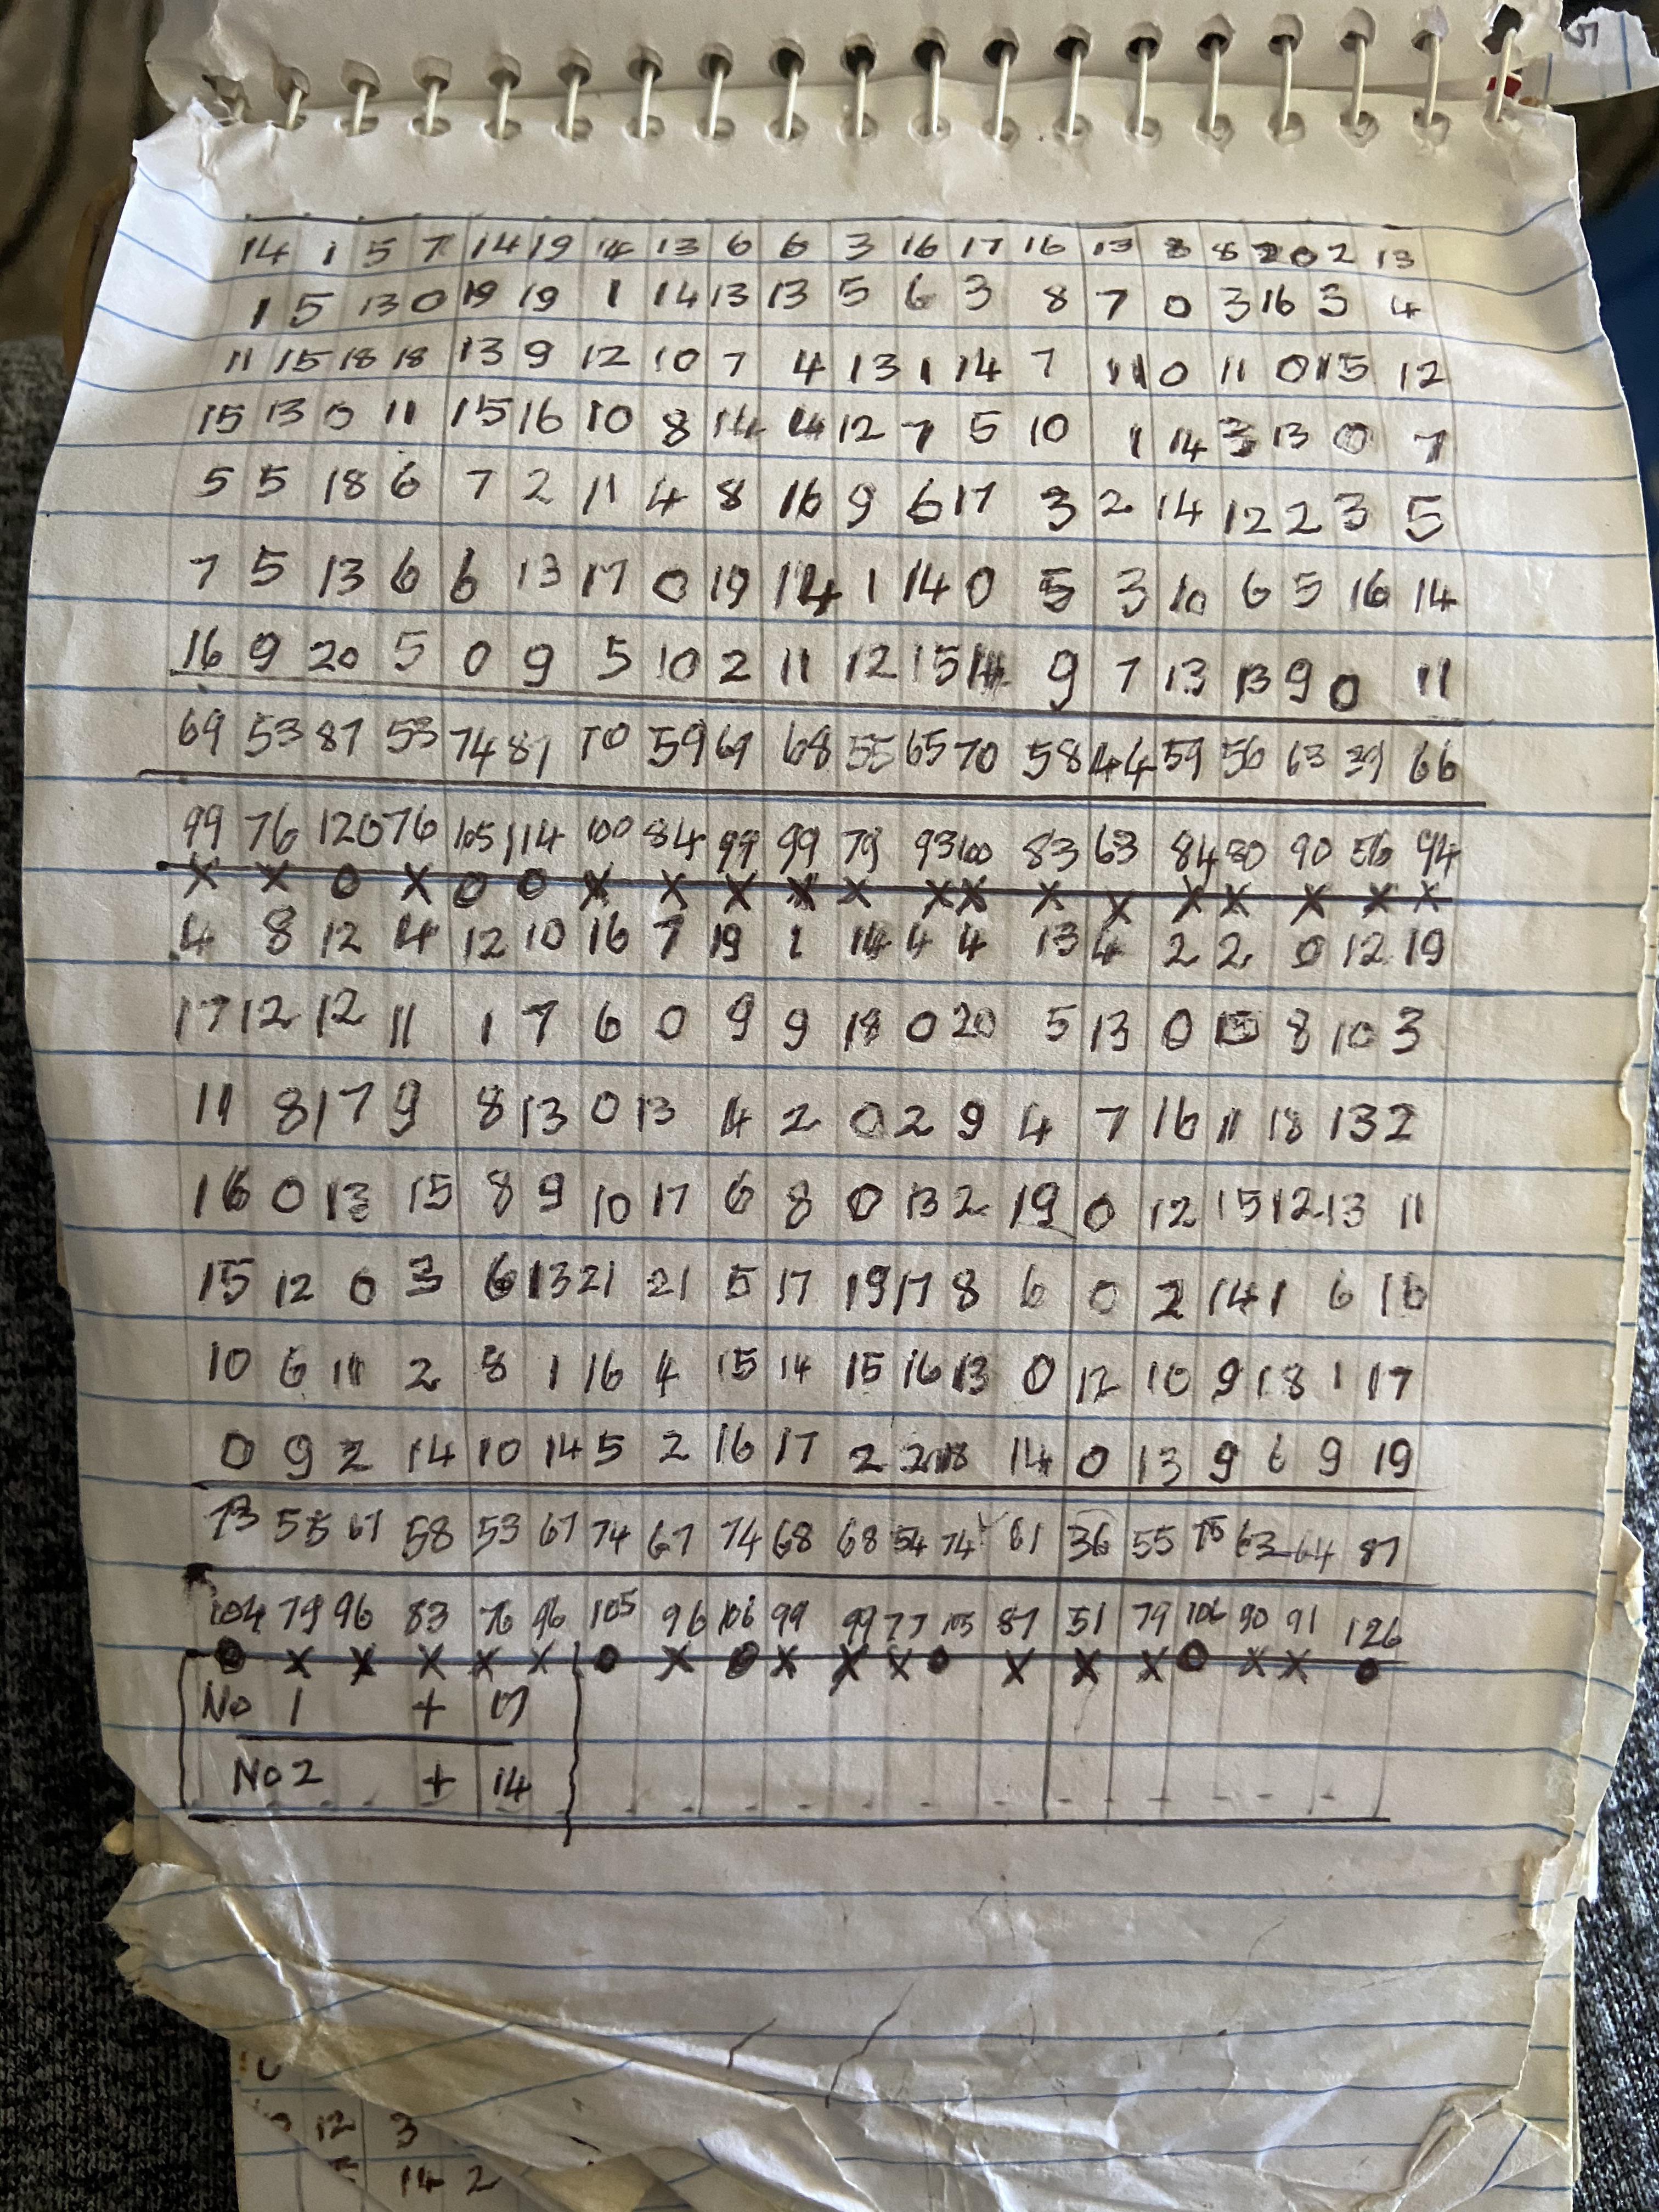 14 1 5 7 14 19 14 13 6 6 3 16 17 16 13 8 8 20 2 13
1 5 13 0 19 19 1 14 13 13 5 6 3 8 7 0 3 16 3 4
11 15 18 18 13 9 12 10 7 4 13 1 14 7 11 0 11 0 15 12
15 13 0 11 15 16 10 8 14 14 12 7 5 10 1 14 3 13 0 7
5 5 18 6 7 2 11 4 8 16 9 6 17 3 2 14 12 2 3 5
7 5 13 6 6 13 17 0 19 14 1 14 0 5 3 10 6 5 16 14
16 9 20 5 0 9 5 10 2 11 12 15 14 9 7 13 13 9 0 11
69 53 87 53 74 87 70 59 69 68 55 65 70 58 44 59 56 63 39 66
99 76 120 76 105 114 100 84 99 99 79 93 100 83 63 84 80 90 56 94
X X O X O O X X X X X X X X X X X X X X
4 8 12 4 12 10 16 7 19 1 14 4 4 13 4 2 2 0 12 19
17 12 12 11 1 7 6 0 9 9 18 0 20 5 13 0 15 8 10 3
11 8 17 9 8 13 0 13 4 2 0 2 9 4 7 16 11 18 13 2
16 0 13 15 8 9 10 17 6 8 0 13 2 19 0 12 15 12 13 11
15 12 0 3 6 13 21 21 5 17 19 17 8 6 0 2 14 1 6 16
10 6 11 2 8 1 16 4 15 14 15 16 13 0 12 10 9 18 1 17
0 9 2 14 10 14 5 2 16 17 2 2 18 14 0 13 9 6 9 19
73 55 67 58 53 67 74 67 74 68 68 54 74 61 36 55 75 63 64 87
104 79 96 83 76 96 105 96 106 99 99 77 105 87 51 79 106 90 91 126
O X X X X X O X O X X X O X X X O X X O
No 1 + 17
No 2 + 14
12 3
14 2